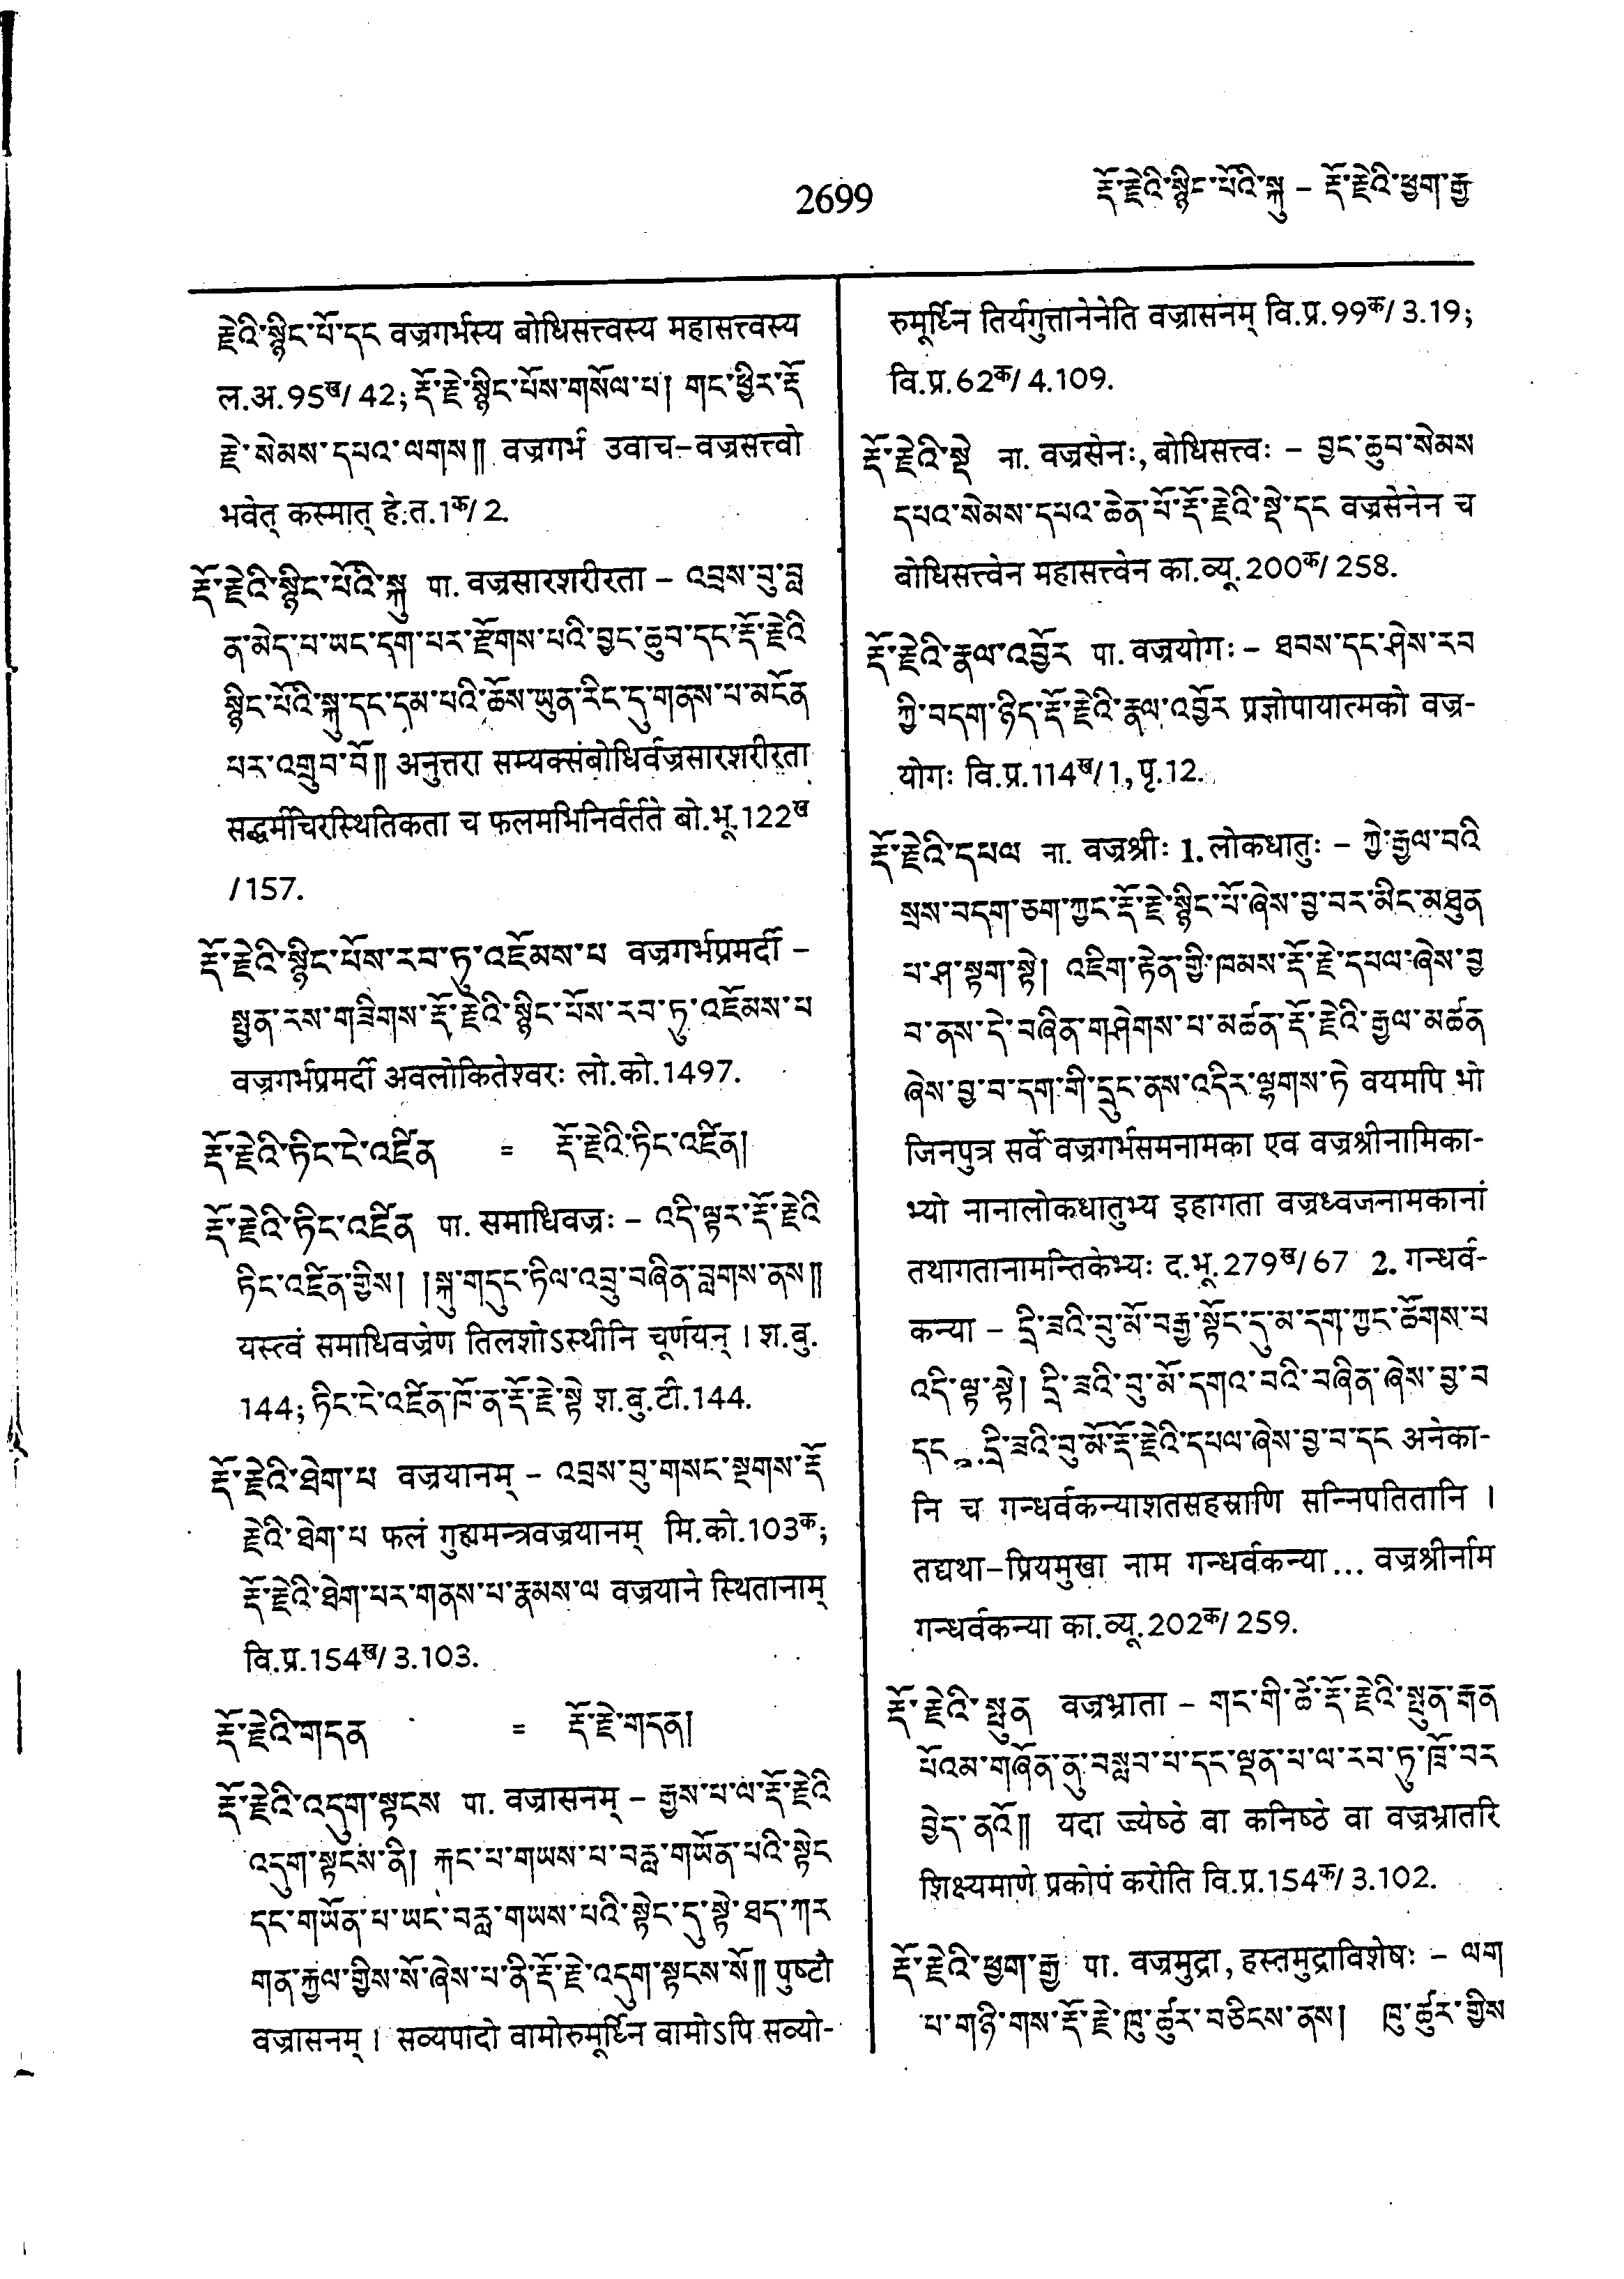 2699
རྡོ་རྗེའི་སྙིང་པོའི་སྐུ – རྡོ་རྗེའི་ཕྱག་རྒྱ
རྗེའི་སྙིང་པོ་དང वज्रगर्भस्य बोधिसत्त्वस्य महासत्त्वस्य
ल.अ.95ख/42; རྡོ་རྗེ་སྙིང་པོས་གསོལ་པ། གང་ཕྱིར་རྡོ
རྗེ་སེམས་དཔའ་ལགས༎ वज्रगर्भ उवाच–वज्रसत्त्वो
भवेत् कस्मात् हे.त.1क/2.
རྡོ་རྗེའི་སྙིང་པོའི་སྐུ पा. वज्रसारशरीरता – འབྲས་བུ་བླ
ན་མེད་པ་ཡང་དག་པར་རྫོགས་པའི་བྱང་ཆུབ་དང་རྡོ་རྗེའི
སྙིང་པོའི་སྐུ་དང་དམ་པའི་ཆོས་ཡུན་རིང་དུ་གནས་པ་མངོན
པར་འགྲུབ་བོ༎ अनुत्तरा सम्यक्संबोधिर्वज्रसारशरीरता
सद्धर्मचिरस्थितिकता च फलमभिनिर्वर्तते बो.भू.122ख
/157.
རྡོ་རྗེའི་སྙིང་པོས་རབ་ཏུ་འཇོམས་པ वज्रगर्भप्रमर्दी –
སྤྱན་རས་གཟིགས་རྡོ་རྗེའི་སྙིང་པོས་རབ་ཏུ་འཇོམས་པ
वज्रगर्भप्रमर्दी अवलोकितेश्वरः लो.को.1497.
རྡོ་རྗེའི་ཏིང་ངེ་འཛིན = རྡོ་རྗེའི་ཏིང་འཛིན།
རྡོ་རྗེའི་ཏིང་འཛིན पा. समाधिवज्रः – འདི་ལྟར་རྡོ་རྗེའི
ཏིང་འཛིན་གྱིས། །སྐུ་གདུང་ཏིལ་འབྲུ་བཞིན་བླགས་ནས༎
यस्त्वं समाधिवज्रेण तिलशोऽस्थीनि चूर्णयन् । श.बु.
144; ཏིང་ངེ་འཛིན་ཁོ་ན་རྡོ་རྗེ་སྟེ श.बु.टी.144.
རྡོ་རྗེའི་ཐེག་པ वज्रयानम् – འབྲས་བུ་གསང་སྔགས་རྡོ
རྗེའི་ཐེག་པ फलं गुह्यमन्त्रवज्रयानम् मि.को.103क;
རྡོ་རྗེའི་ཐེག་པར་གནས་པ་རྣམས་ལ वज्रयाने स्थितानाम्
वि.प्र.154ख/3.103.
རྡོ་རྗེའི་གདན = རྡོ་རྗེ་གདན།
རྡོ་རྗེའི་འདུག་སྟངས पा. वज्रासनम् – རྒྱས་པ་ལ་རྡོ་རྗེའི
འདུག་སྟངས་ནི། རྐང་པ་གཡས་པ་བརླ་གཡོན་པའི་སྟེང
དང་གཡོན་པ་ཡང་བརླ་གཡས་པའི་སྟེང་དུ་སྟེ་ཐད་ཀར
གན་རྐྱལ་གྱིས་སོ་ཞེས་པ་ནི་རྡོ་རྗེ་འདུག་སྟངས་སོ༎ पुष्टौ
वज्रासनम् । सव्यपादो वामोरुमूर्ध्नि वामोऽपि सव्यो-
रुमूर्ध्नि तिर्यगुत्तानेनेति वज्रासनम् वि.प्र.99क/3.19;
वि.प्र.62क/4.109.
རྡོ་རྗེའི་སྡེ ना. वज्रसेनः, बोधिसत्त्वः – བྱང་ཆུབ་སེམས
དཔའ་སེམས་དཔའ་ཆེན་པོ་རྡོ་རྗེའི་སྡེ་དང वज्रसेनेन च
बोधिसत्त्वेन महासत्त्वेन का.व्यू.200क/258.
རྡོ་རྗེའི་རྣལ་འབྱོར पा. वज्रयोगः – ཐབས་དང་ཤེས་རབ
ཀྱི་བདག་ཉིད་རྡོ་རྗེའི་རྣལ་འབྱོར प्रज्ञोपायात्मको वज्र-
योगः वि.प्र.114ख/1, पृ.12.
རྡོ་རྗེའི་དཔལ ना. वज्रश्रीः 1. लोकधातुः – ཀྱེ་རྒྱལ་བའི
སྲས་བདག་ཅག་ཀྱང་རྡོ་རྗེ་སྙིང་པོ་ཞེས་བྱ་བར་མིང་མཐུན
པ་ཤ་སྟག་སྟེ། འཇིག་རྟེན་གྱི་ཁམས་རྡོ་རྗེ་དཔལ་ཞེས་བྱ
བ་ནས་དེ་བཞིན་གཤེགས་པ་མཚན་རྡོ་རྗེའི་རྒྱལ་མཚན
ཞེས་བྱ་བ་དག་གི་དྲུང་ནས་འདིར་ལྷགས་ཏེ वयमपि भो
जिनपुत्र सर्वे वज्रगर्भसमनामका एव वज्रश्रीनामिका-
भ्यो नानालोकधातुभ्य इहागता वज्रध्वजनामकानां
तथागतानामन्तिकेभ्यः द.भू.279ख/67 2. गन्धर्व-
कन्या – དྲི་ཟའི་བུ་མོ་བརྒྱ་སྟོང་དུ་མ་དག་ཀྱང་ཚོགས་པ
འདི་ལྟ་སྟེ། དྲི་ཟའི་བུ་མོ་དགའ་བའི་བཞིན་ཞེས་བྱ་བ
དང ... དྲི་ཟའི་བུ་མོ་རྡོ་རྗེའི་དཔལ་ཞེས་བྱ་བ་དང अनेका-
नि च गन्धर्वकन्याशतसहस्राणि सन्निपतितानि ।
तद्यथा–प्रियमुखा नाम गन्धर्वकन्या... वज्रश्रीर्नाम
गन्धर्वकन्या का.व्यू.202क/259.
རྡོ་རྗེའི་སྤུན वज्रभ्राता – གང་གི་ཚེ་རྡོ་རྗེའི་སྤུན་རྒན
པོའམ་གཞོན་ནུ་བསླབ་པ་དང་ལྡན་པ་ལ་རབ་ཏུ་ཁྲོ་བར
བྱེད་ནའོ༎ यदा ज्येष्ठे वा कनिष्ठे वा वज्रभ्रातरि
शिक्ष्यमाणे प्रकोपं करोति वि.प्र.154क/3.102.
རྡོ་རྗེའི་ཕྱག་རྒྱ पा. वज्रमुद्रा, हस्तमुद्राविशेषः – ལག
པ་གཉི་གས་རྡོ་རྗེ་ཁུ་ཚུར་བཅིངས་ནས། ཁུ་ཚུར་གྱིས